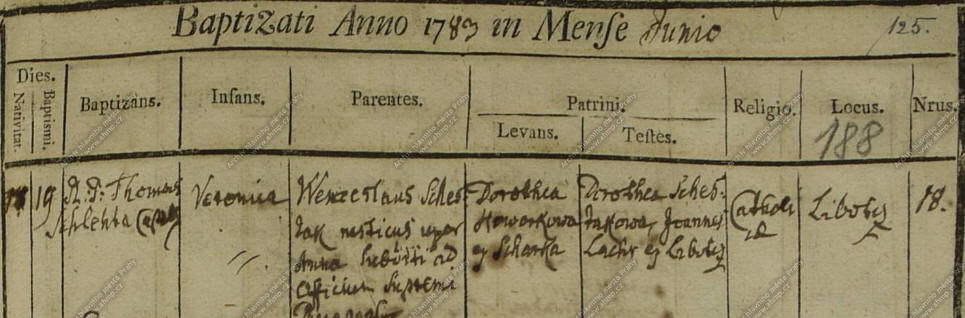 Baptizati Anno 1783 in Mense Junio
125.
Dies.
Nativitat.
Baptismi.
Baptizans.
Infans.
Parentes.
Patrini.
Levans.
Testes.
Religio.
Locus.
188
Nrus.
19
R. D. Thomas
Schlehta
Veronica
Wenceslaus Sches
tak rusticus uxor
Anna subditi ad
Officium Supremi
Dorothea
Howorkowa
Scharka
Dorothea Sches
takowa, Joannes
Lachr ex Libotz
Catholi
Libotz
18.